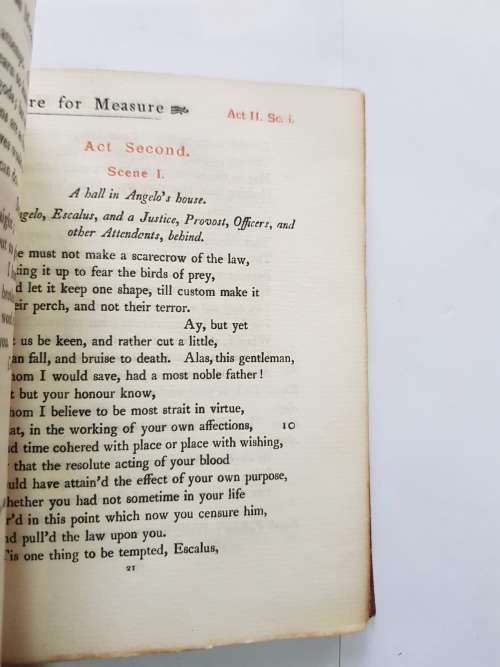 re for Measure
Act II. Sc. i.
Act Second.
Scene I.
A hall in Angelo's house.
gelo, Escalus, and a Justice, Provost, Officers, and
other Attendants, behind.
e must not make a scarecrow of the law,
ting it up to fear the birds of prey,
d let it keep one shape, till custom make it
eir perch, and not their terror.
Ay, but yet
t us be keen, and rather cut a little,
an fall, and bruise to death. Alas, this gentleman,
hom I would save, had a most noble father!
t but your honour know,
hom I believe to be most strait in virtue,
at, in the working of your own affections, 10
d time cohered with place or place with wishing,
that the resolute acting of your blood
uld have attain'd the effect of your own purpose,
hether you had not sometime in your life
r'd in this point which now you censure him,
nd pull'd the law upon you.
'Tis one thing to be tempted, Escalus,
21